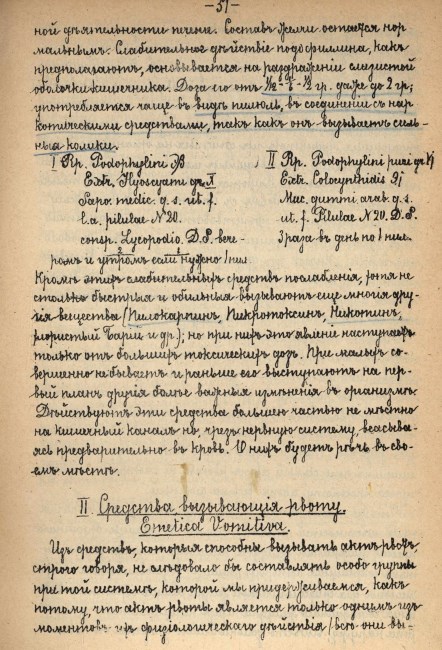 —51—
ной дѣятельности печени. Составъ желчи остается нор-
мальнымъ. Слабительное дѣйствіе подофиллина, какъ
предполагаютъ, основывается на раздраженіи слизистой
оболочки кишечника. Доза его отъ гр. даже до 2 гр;
употребляется чаще въ видѣ пилюль, въ соединеніи съ нар-
котическими средствами, такъ какъ онъ вызываетъ силь-
ныя колики.
I Rp. Podophylini
Extr. Hyoscyami gr. X
Sapo. medic. q. s. ut. f.
l. a. pilulae N 20.
consp. Lycopodio. D. S. вече-
ромъ и утромъ если нужно 1 пил.
II Rp. Podophylini puri gr.
Extr. Colocynthidis
Muc. gummi arab. q. s.
ut. f. Pilulae N 20. D. S.
3 раза въ день по 1 пил.
Кромѣ этихъ слабительныхъ средствъ послабленія, хотя не
столь быстрыя и обильныя вызываютъ еще многія дру-
гія вещества (Пилокарпинъ, Пикротоксинъ, Никотинъ,
хлористый Барій и др.); но при нихъ это явленіе наступаетъ
только отъ большихъ токсическихъ дозъ. При малыхъ со-
вершенно не бываетъ и раньше его выступаютъ на пер-
вый планъ другія болѣе важныя измѣненія въ организмѣ.
Дѣйствуютъ эти средства большею частью не мѣстно
на кишечный каналъ но, чрезъ нервную систему, всасыва-
ясь предварительно въ кровь. О нихъ будетъ рѣчь въ сво-
емъ мѣстѣ.
II Средства вызывающія рвоту.
Emetica Vomitiva.
Изъ средствъ, которыя способны вызывать актъ рвоты,
строго говоря, не слѣдовало бы составлять особой группы
при той системѣ, которой мы придерживаемся, какъ
потому, что актъ рвоты является только однимъ изъ
моментовъ ихъ физіологическаго дѣйствія (всего они вы-